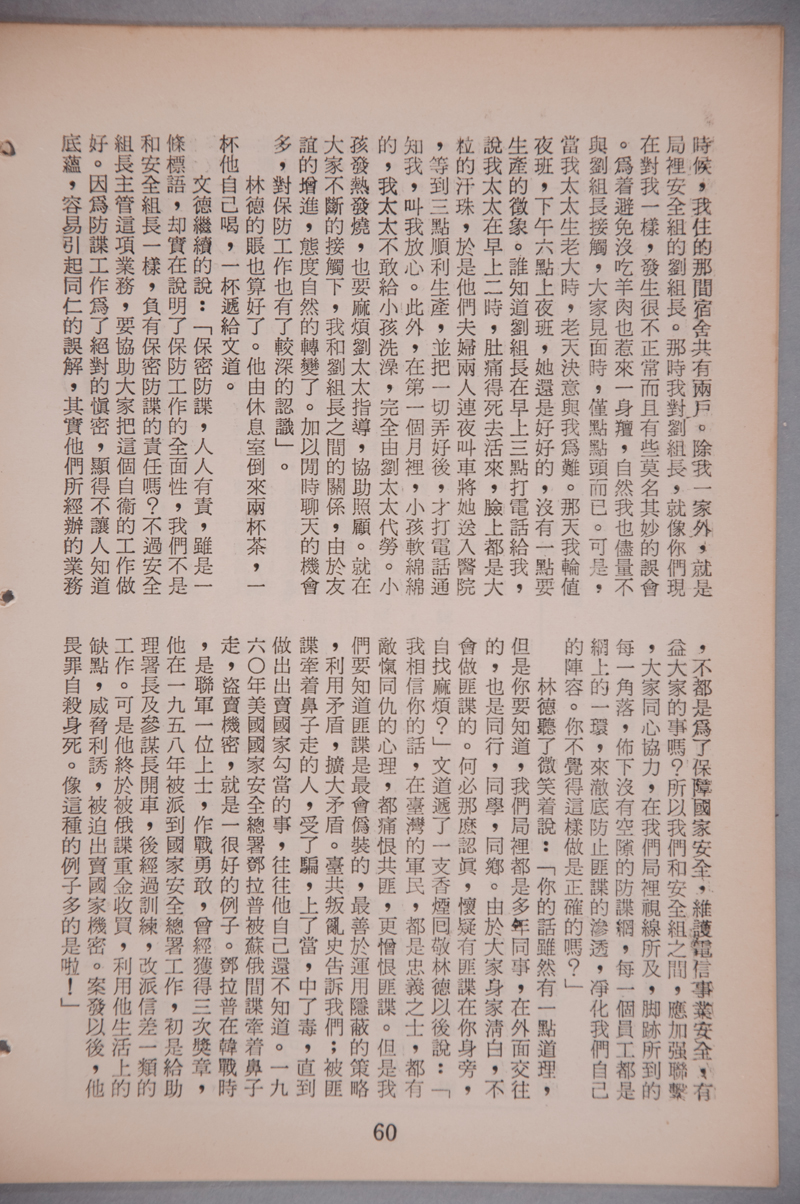 時候，我住的那間宿舍共有兩戶。除我一家外，就是
局裡安全組的劉組長。那時我對劉組長，就像你們現
在對我一樣，發生很不正常而且有些莫名其妙的誤會
。爲着避免沒吃羊肉也惹來一身羶，自然我也儘量不
與劉組長接觸，大家見面時，僅點點頭而已。可是，
當我太太生老大時，老天決意與我爲難。那天我輪値
夜班，下午六點上夜班，她還是好好的，沒有一點要
生產的徵象。誰知道劉組長在早上三點打電話給我，
說我太太在早上二時，肚痛得死去活來，臉上都是大
粒的汗珠，於是他們夫婦兩人連夜叫車將她送入醫院
，等到三點順利生產，並把一切弄好後，才打電話通
知我，叫我放心。此外，在第一個月裡，小孩軟綿綿
的，我太太不敢給小孩洗澡，完全由劉太太代勞。小
孩發熱發燒，也要麻煩劉太太指導，協助照顧。就在
大家不斷的接觸下，我和劉組長之間的關係，由於友
誼的增進，態度自然的轉變了。加以閒時聊天的機會
多，對保防工作也有了較深的認識」。
林德的眼也算好了。他由休息室倒來兩杯茶，一
杯他自己喝，一杯遞給文道。
文德繼續的說：「保密防諜，人人有責，雖是一
條標語，却實在說明了保防工作的全面性，我們不是
和安全組長一樣，負有保密防諜的責任嗎？不過安全
組長主管這項業務，要協助大家把這個自衞的工作做
好。因爲防諜工作爲了絕對的愼密，顯得不讓人知道
底蘊，容易引起同仁的誤解，其實他們所經辦的業務
，不都是爲了保障國家安全，維護電信事業安全，有
益大家的事嗎？所以我們和安全組之間，應加强聯繫
，大家同心協力，在我們局裡視線所及，脚跡所到的
每一角落，佈下沒有空隙的防諜網，每一個員工都是
網上的一環，來澈底防止匪諜的滲透，凈化我們自己
的陣容。你不覺得這樣做是正確的嗎？」
林德聽了微笑着說：「你的話雖然有一點道理，
但是你要知道，我們局裡都是多年同事，在外面交往
的，也是同行，同學，同鄉。由於大家身家淸白，不
會做匪諜的。何必那麽認眞，懷疑有匪諜在你身旁，
自找麻煩？」文道遞了一支香煙囘敬林德以後說：「
我相信你的話，在臺灣的軍民，都是忠義之士，都有
敵愾同仇的心理，都痛恨共匪，更憎恨匪諜。但是我
們要知道匪諜是最會僞裝的，最善於運用隱蔽的策略
，利用矛盾，擴大矛盾。臺共叛亂史吿訴我們；被匪
諜牽着鼻子走的人，受了騙，上了當，中了毒，直到
做出出賣國家勾當的事，往往他自己還不知道。一九
六〇年美國國家安全總署鄧拉普被蘇俄間諜牽着鼻子
走，盜賣機密，就是一很好的例子。鄧拉普在韓戰時
，是聯軍一位上士，作戰勇敢，曾經獲得三次獎章，
他在一九五八年被派到國家安全總署工作，初是給助
理署長及參謀長開車，後經過訓練，改派信差一類的
工作。可是他終於被俄諜重金收買，利用他生活上的
缺點，威脅利誘，被迫出賣國家機密。案發以後，他
畏罪自殺身死。像這種的例子多的是啦！」
60